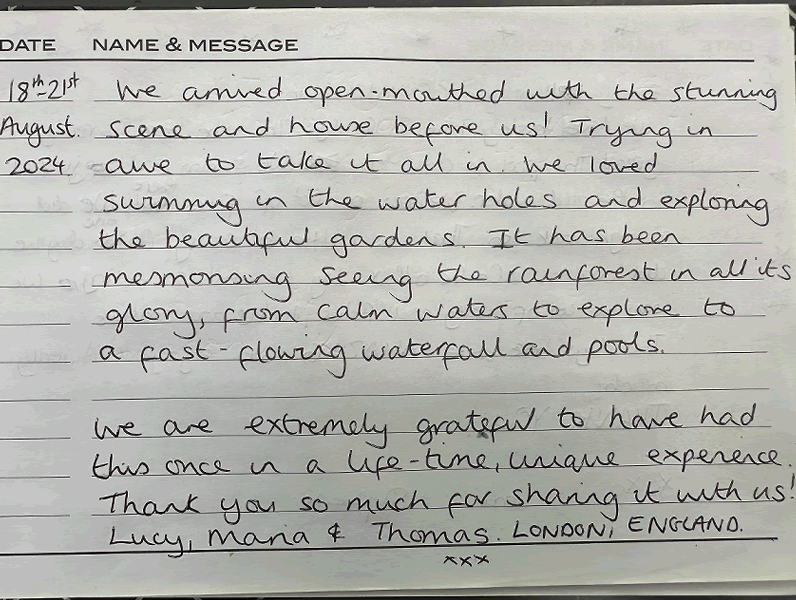 DATE NAME & MESSAGE
18th-21st We arrived open-mouthed with the stunning
August. scene and house before us! Trying in
2024 awe to take it all in. We loved
swimming in the water holes and exploring
the beautiful gardens. It has been
mesmorising seeing the rainforest in all its
glory, from calm waters to explore to
a fast-flowing waterfall and pools.
We are extremely grateful to have had
this once in a life-time, unique experience.
Thank you so much for sharing it with us!
Lucy, Maria & Thomas. LONDON, ENGLAND.
xxx